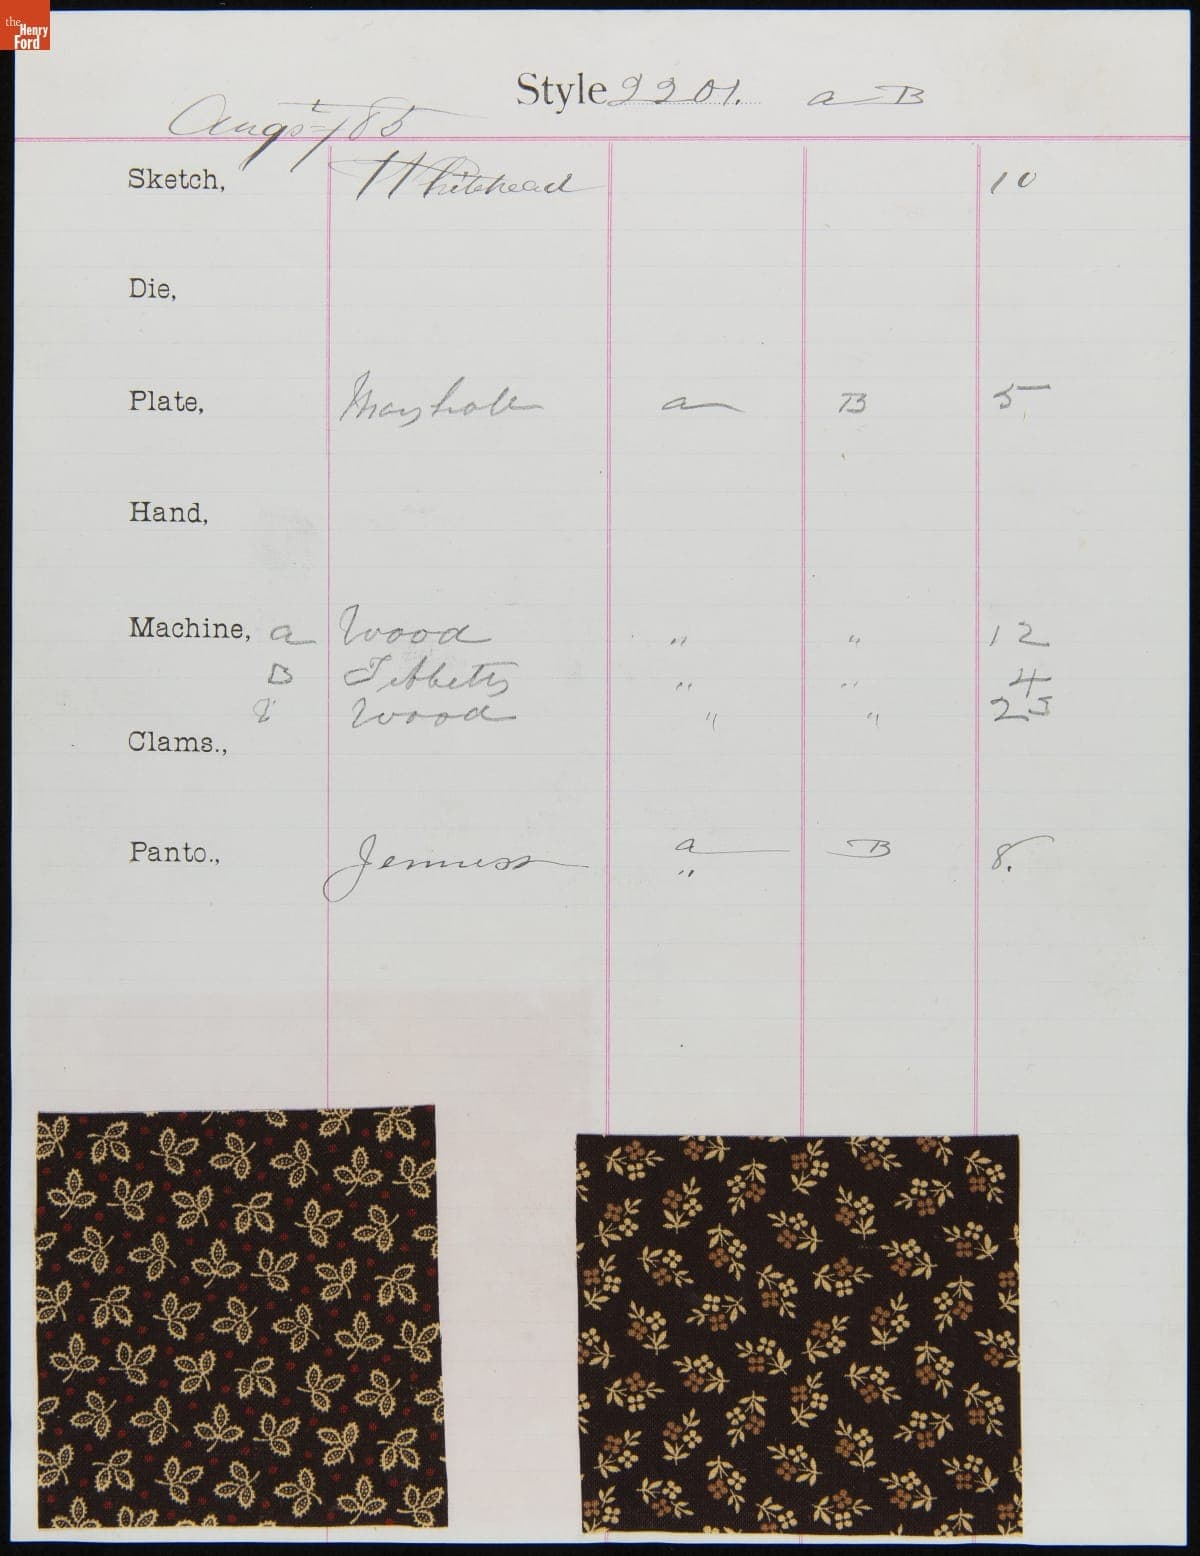 the
Henry
Ford
Style 2201. a B
Sketch, Whitehead 10
Die,
Plate, a B 5
Hand,
Machine, a Wood " " 12
B Tibbetts " " 4
Wood " " 25
Clams.,
Panto., Jenness a B 8.
"